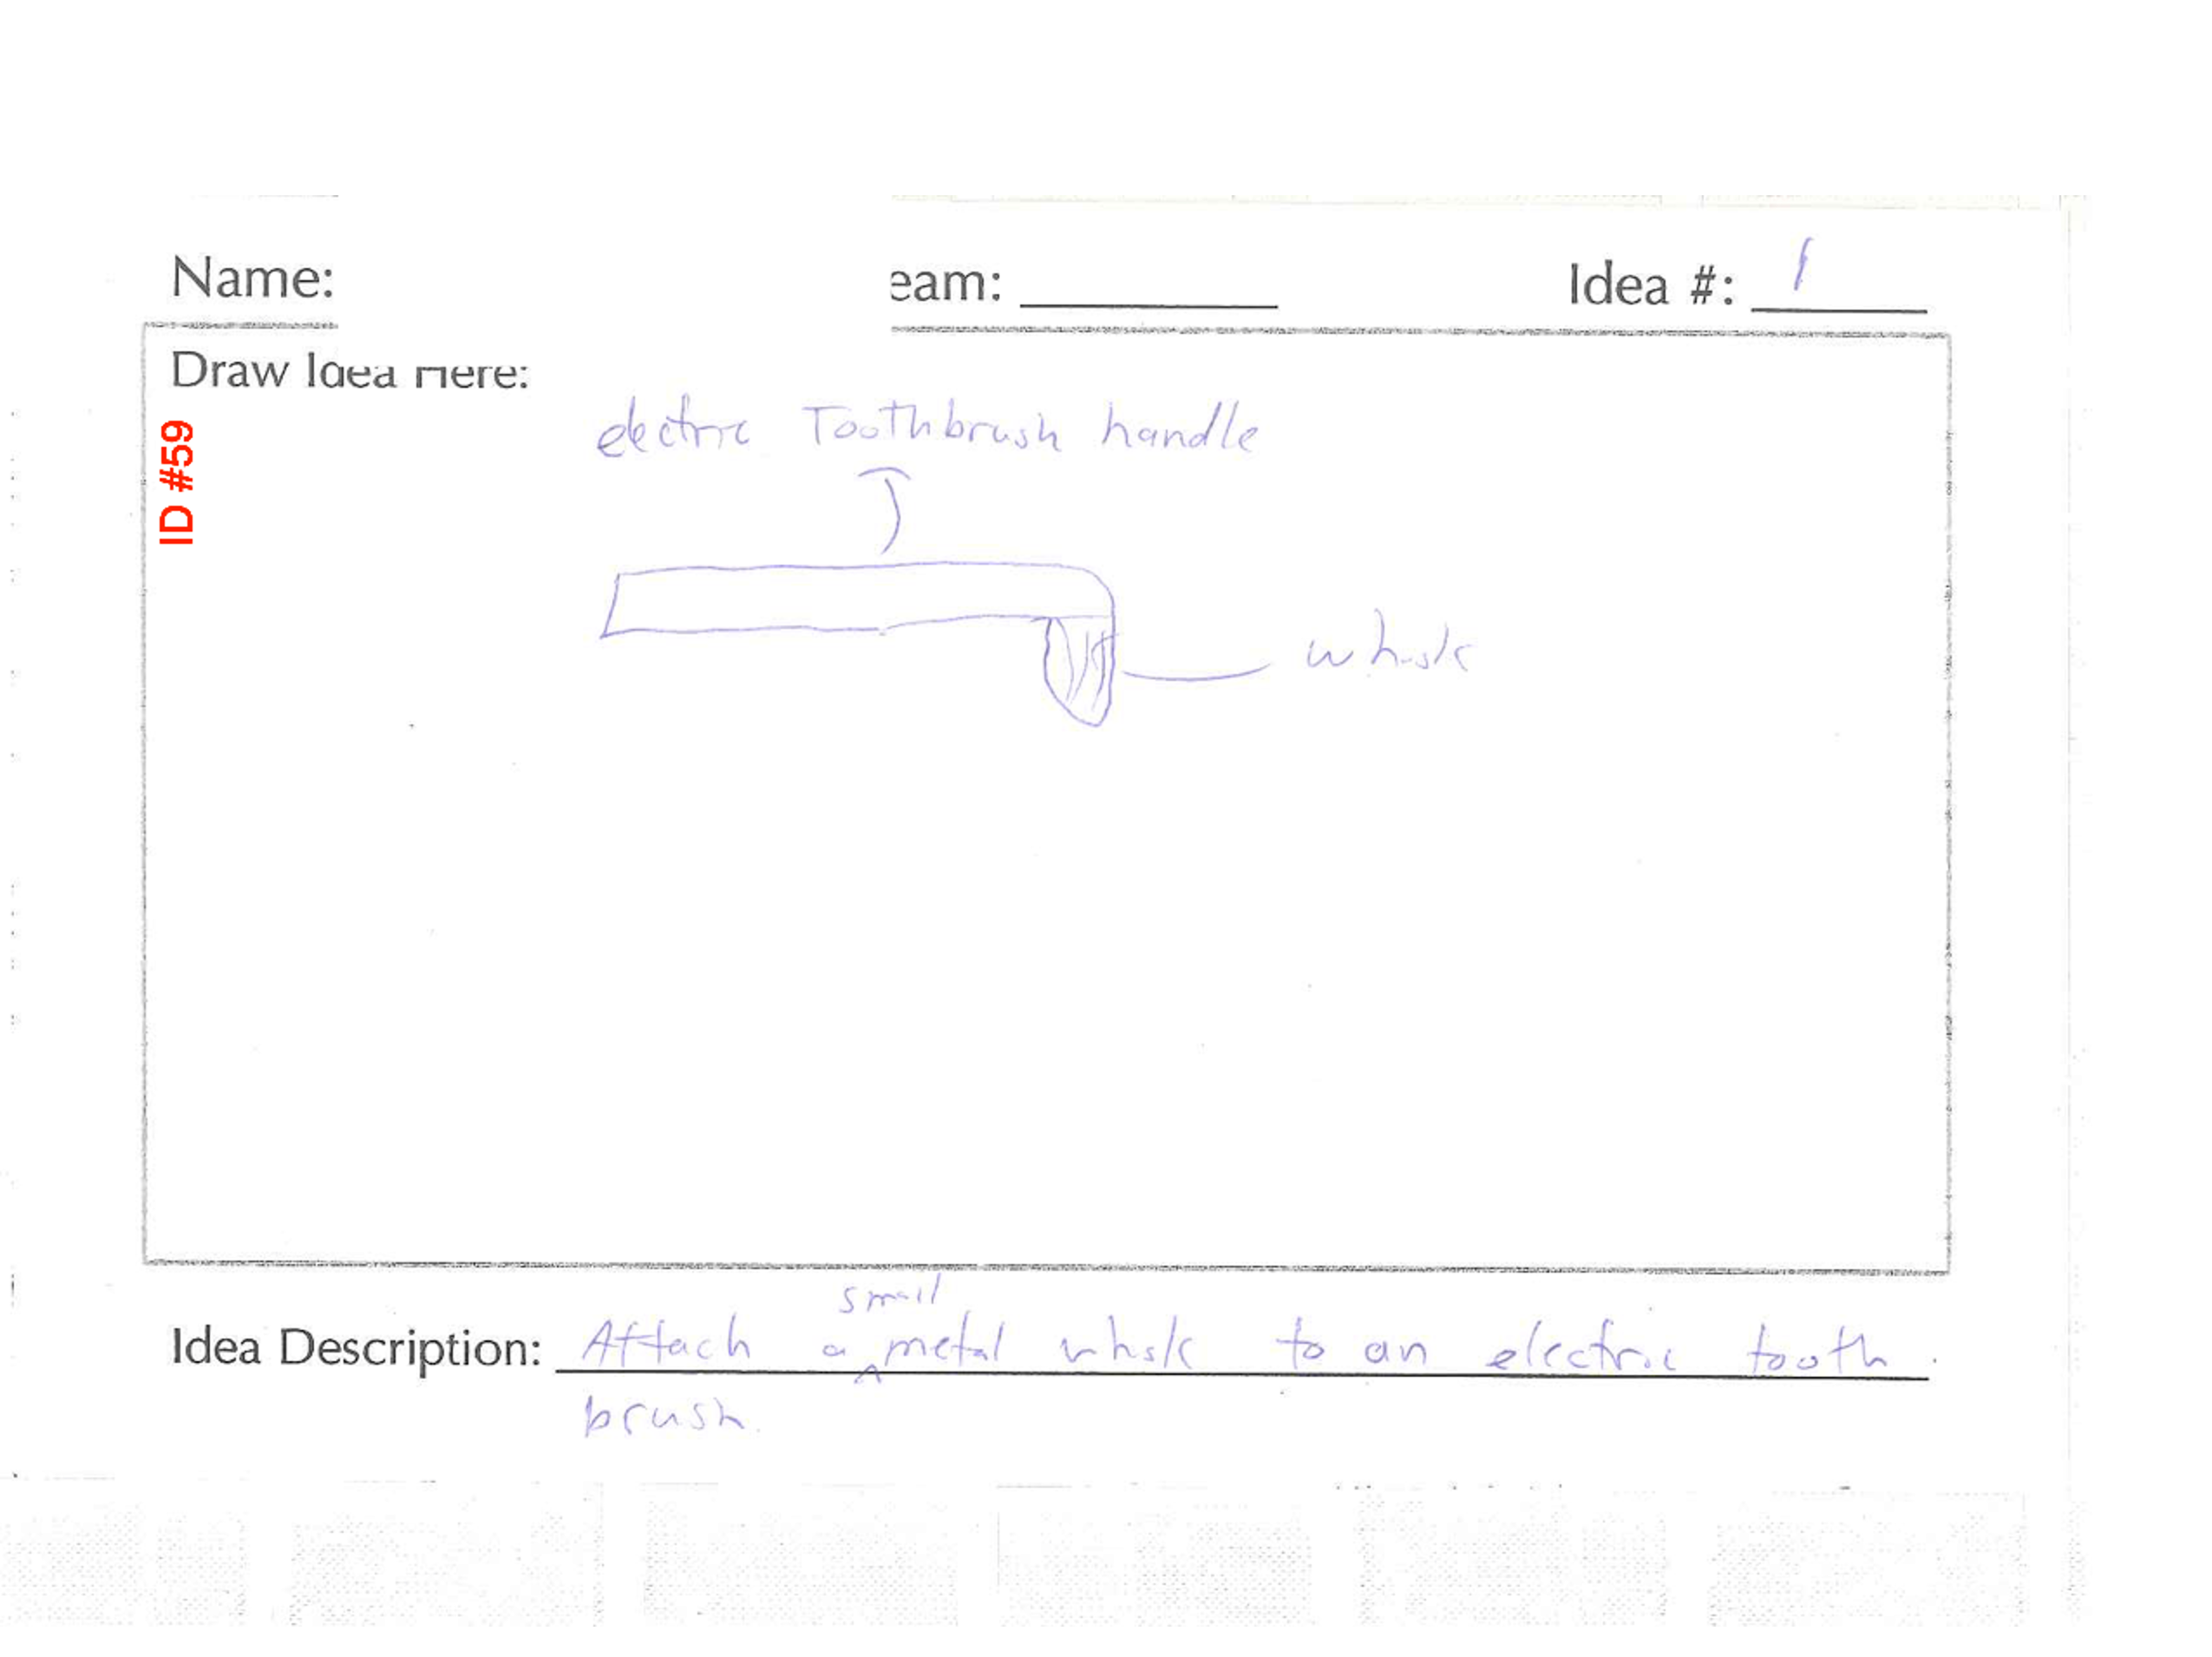 Name:
eam:
Idea #: 1
Draw Idea Here:
ID #59
electric Toothbrush handle
whisk
small
Idea Description: Attach a metal whisk to an electric tooth
brush.